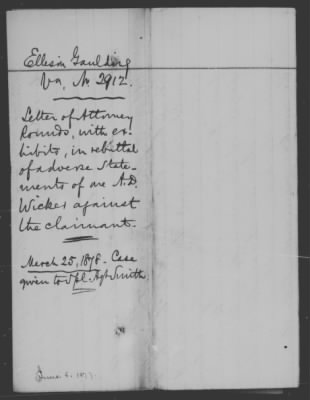 Ellison Gaulding
Va, No 2912.
Letter of Attorney
Rounds, with ex-
hibits, in rebuttal
of adverse State-
ments of one A.D.
Wicker against
the claimant.
March 25, 1878. Case
given to Spl. Agt Smith.
June 6. 1877.